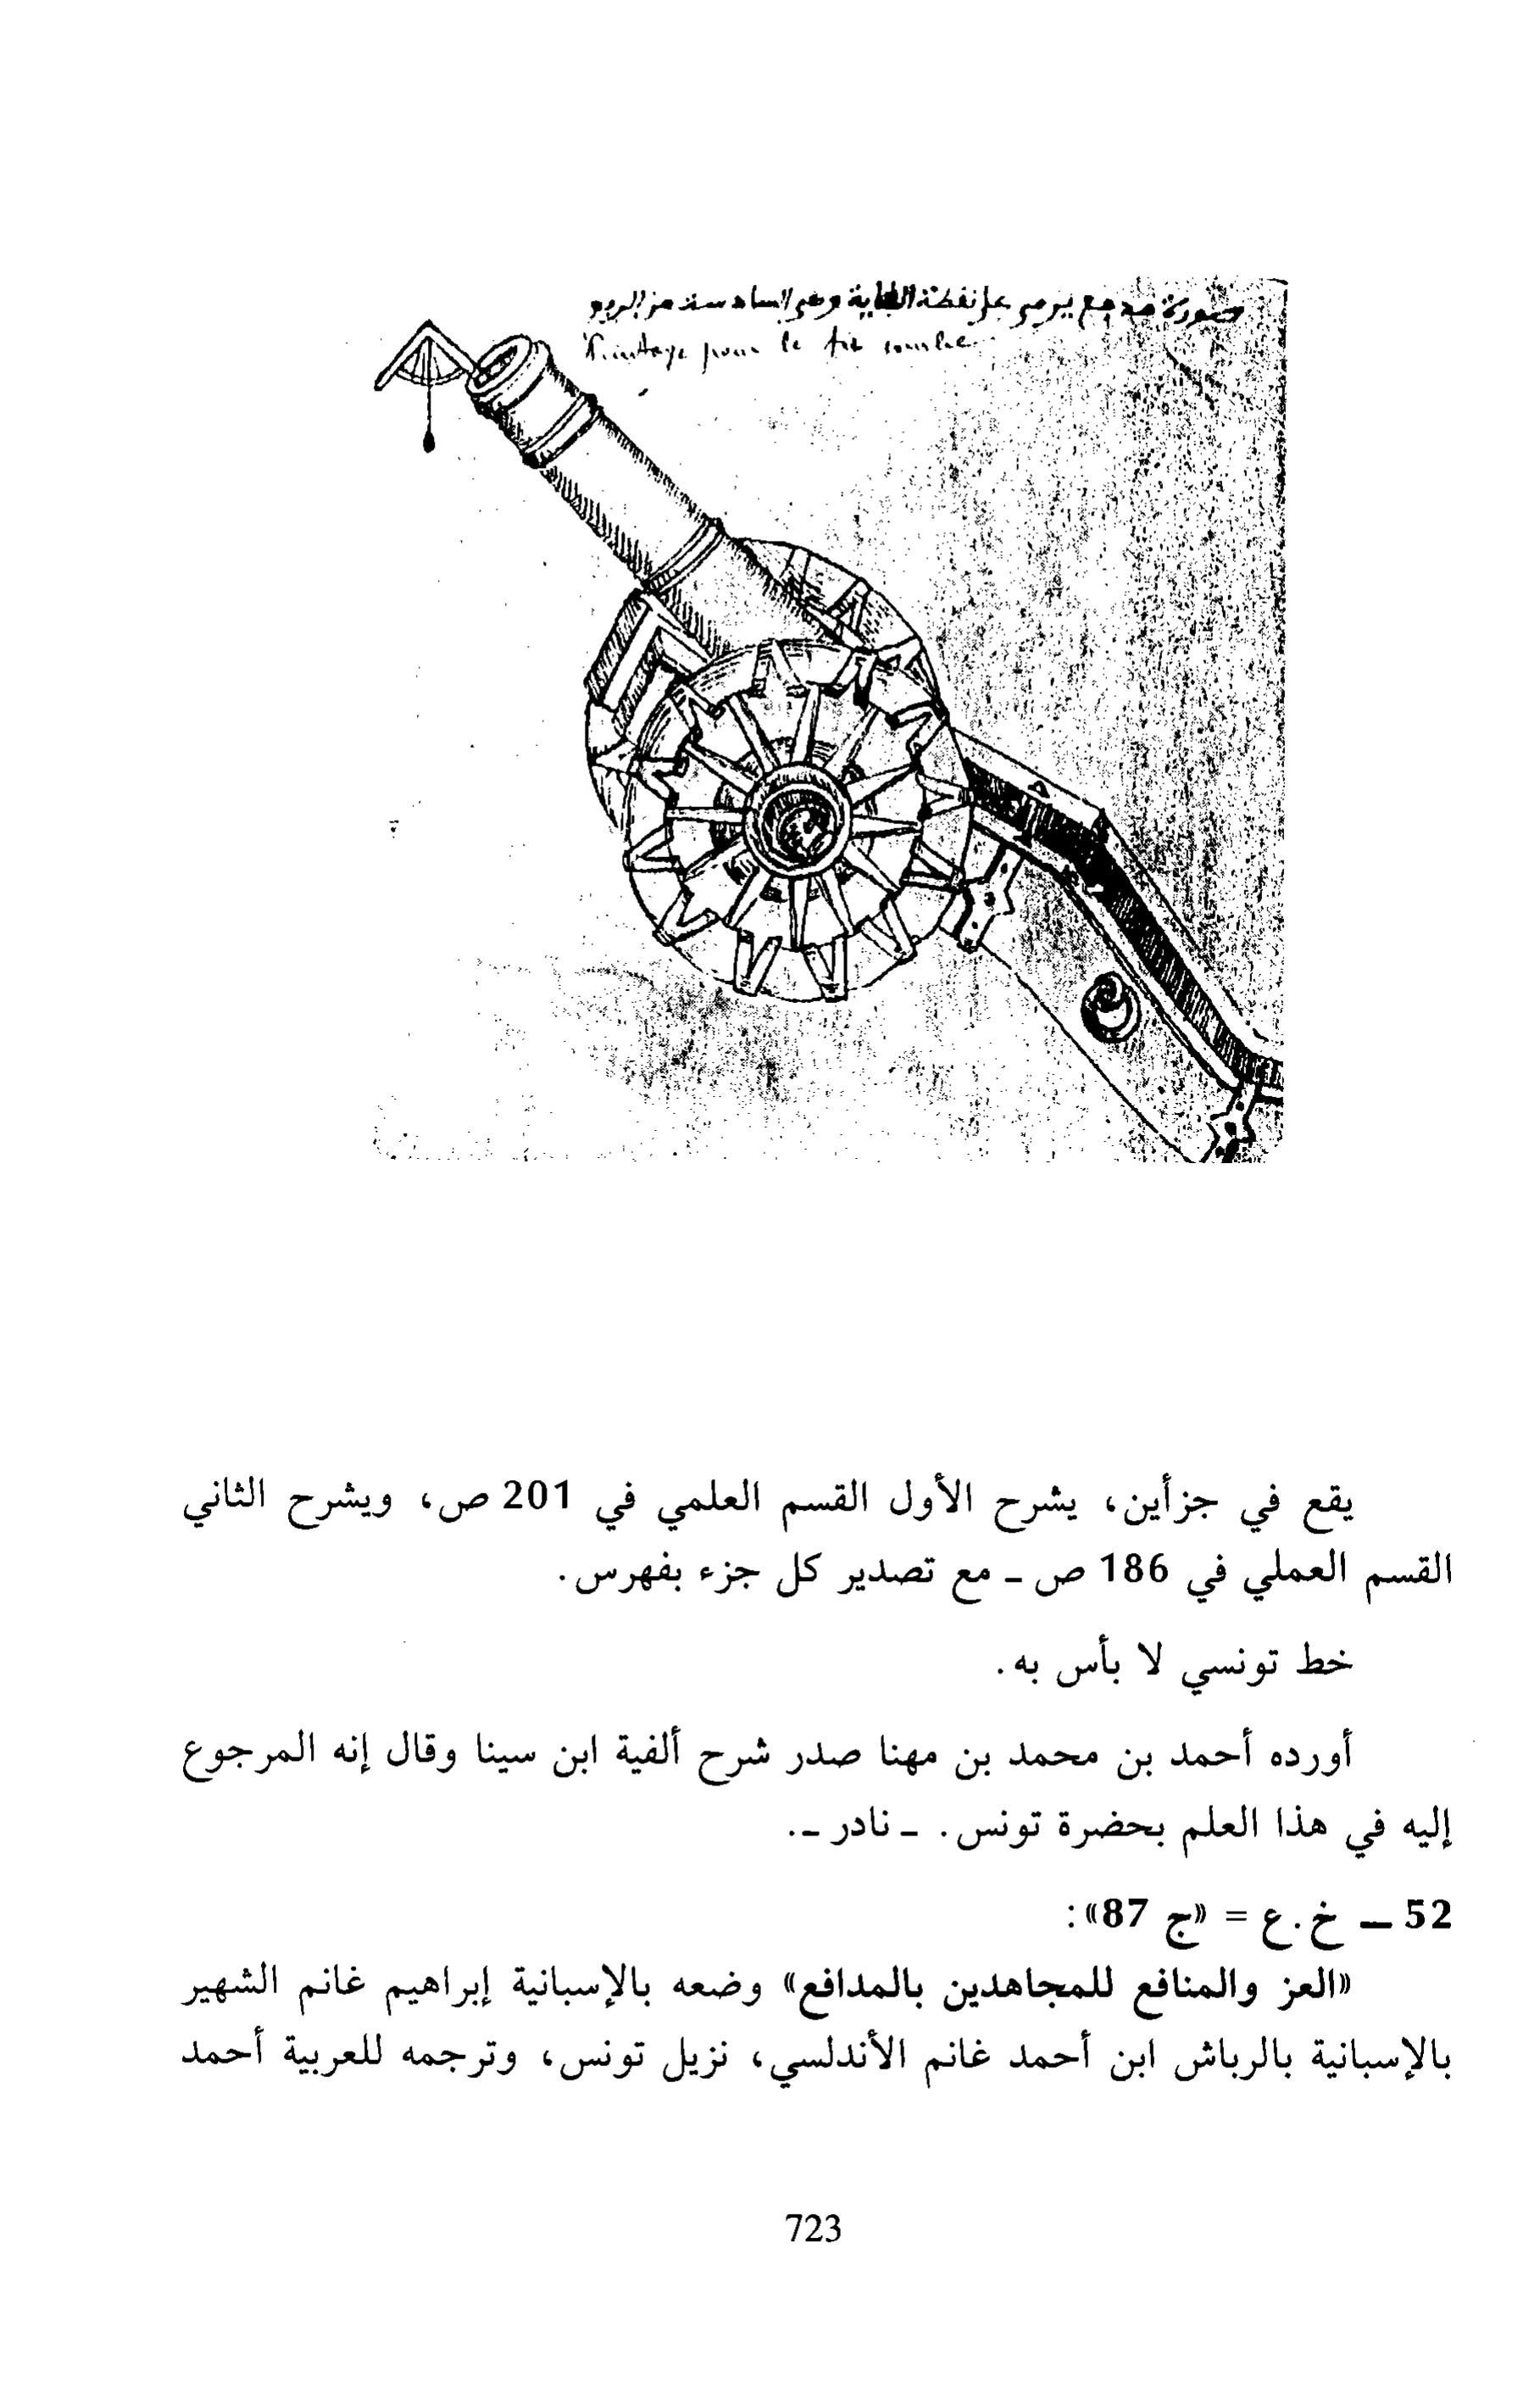 صورة مدفع يرمي على نقطة الثانية وهي السادسة من الربع
Pointage pour le tir courbe
يقع في جزأين، يشرح الأول القسم العلمي في 201 ص، ويشرح الثاني
القسم العملي في 186 ص - مع تصدير كل جزء بفهرس.
خط تونسي لا بأس به.
أورده أحمد بن محمد بن مهنا صدر شرح ألفية ابن سينا وقال إنه المرجوع
إليه في هذا العلم بحضرة تونس. - نادر -.
52 — خ.ع = «ج 87»:
«العز والمنافع للمجاهدين بالمدافع» وضعه بالإسبانية إبراهيم غانم الشهير
بالإسبانية بالرباش ابن أحمد غانم الأندلسي، نزيل تونس، وترجمه للعربية أحمد
723